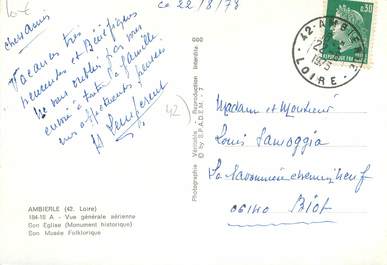 10€
ce 22/8/73
chers amis
Vacances très
heureuses et Bénéfiques
Ne vous oublions pas vous
envoie à toute la famille
nos affectueuses pensées
42
AMBIERLE (42. Loire)
184-18 A - Vue générale aérienne
Son Eglise (Monument historique)
Son Musée Folklorique
Photographie Véritable - Reproduction Interdite
© by S.P.A.D.E.M. - 7
42-AMBIERLE
LOIRE
1973
0,30
Madame et Monsieur
Louis Samoggia
La Savonnière chemin neuf
06140 Biot